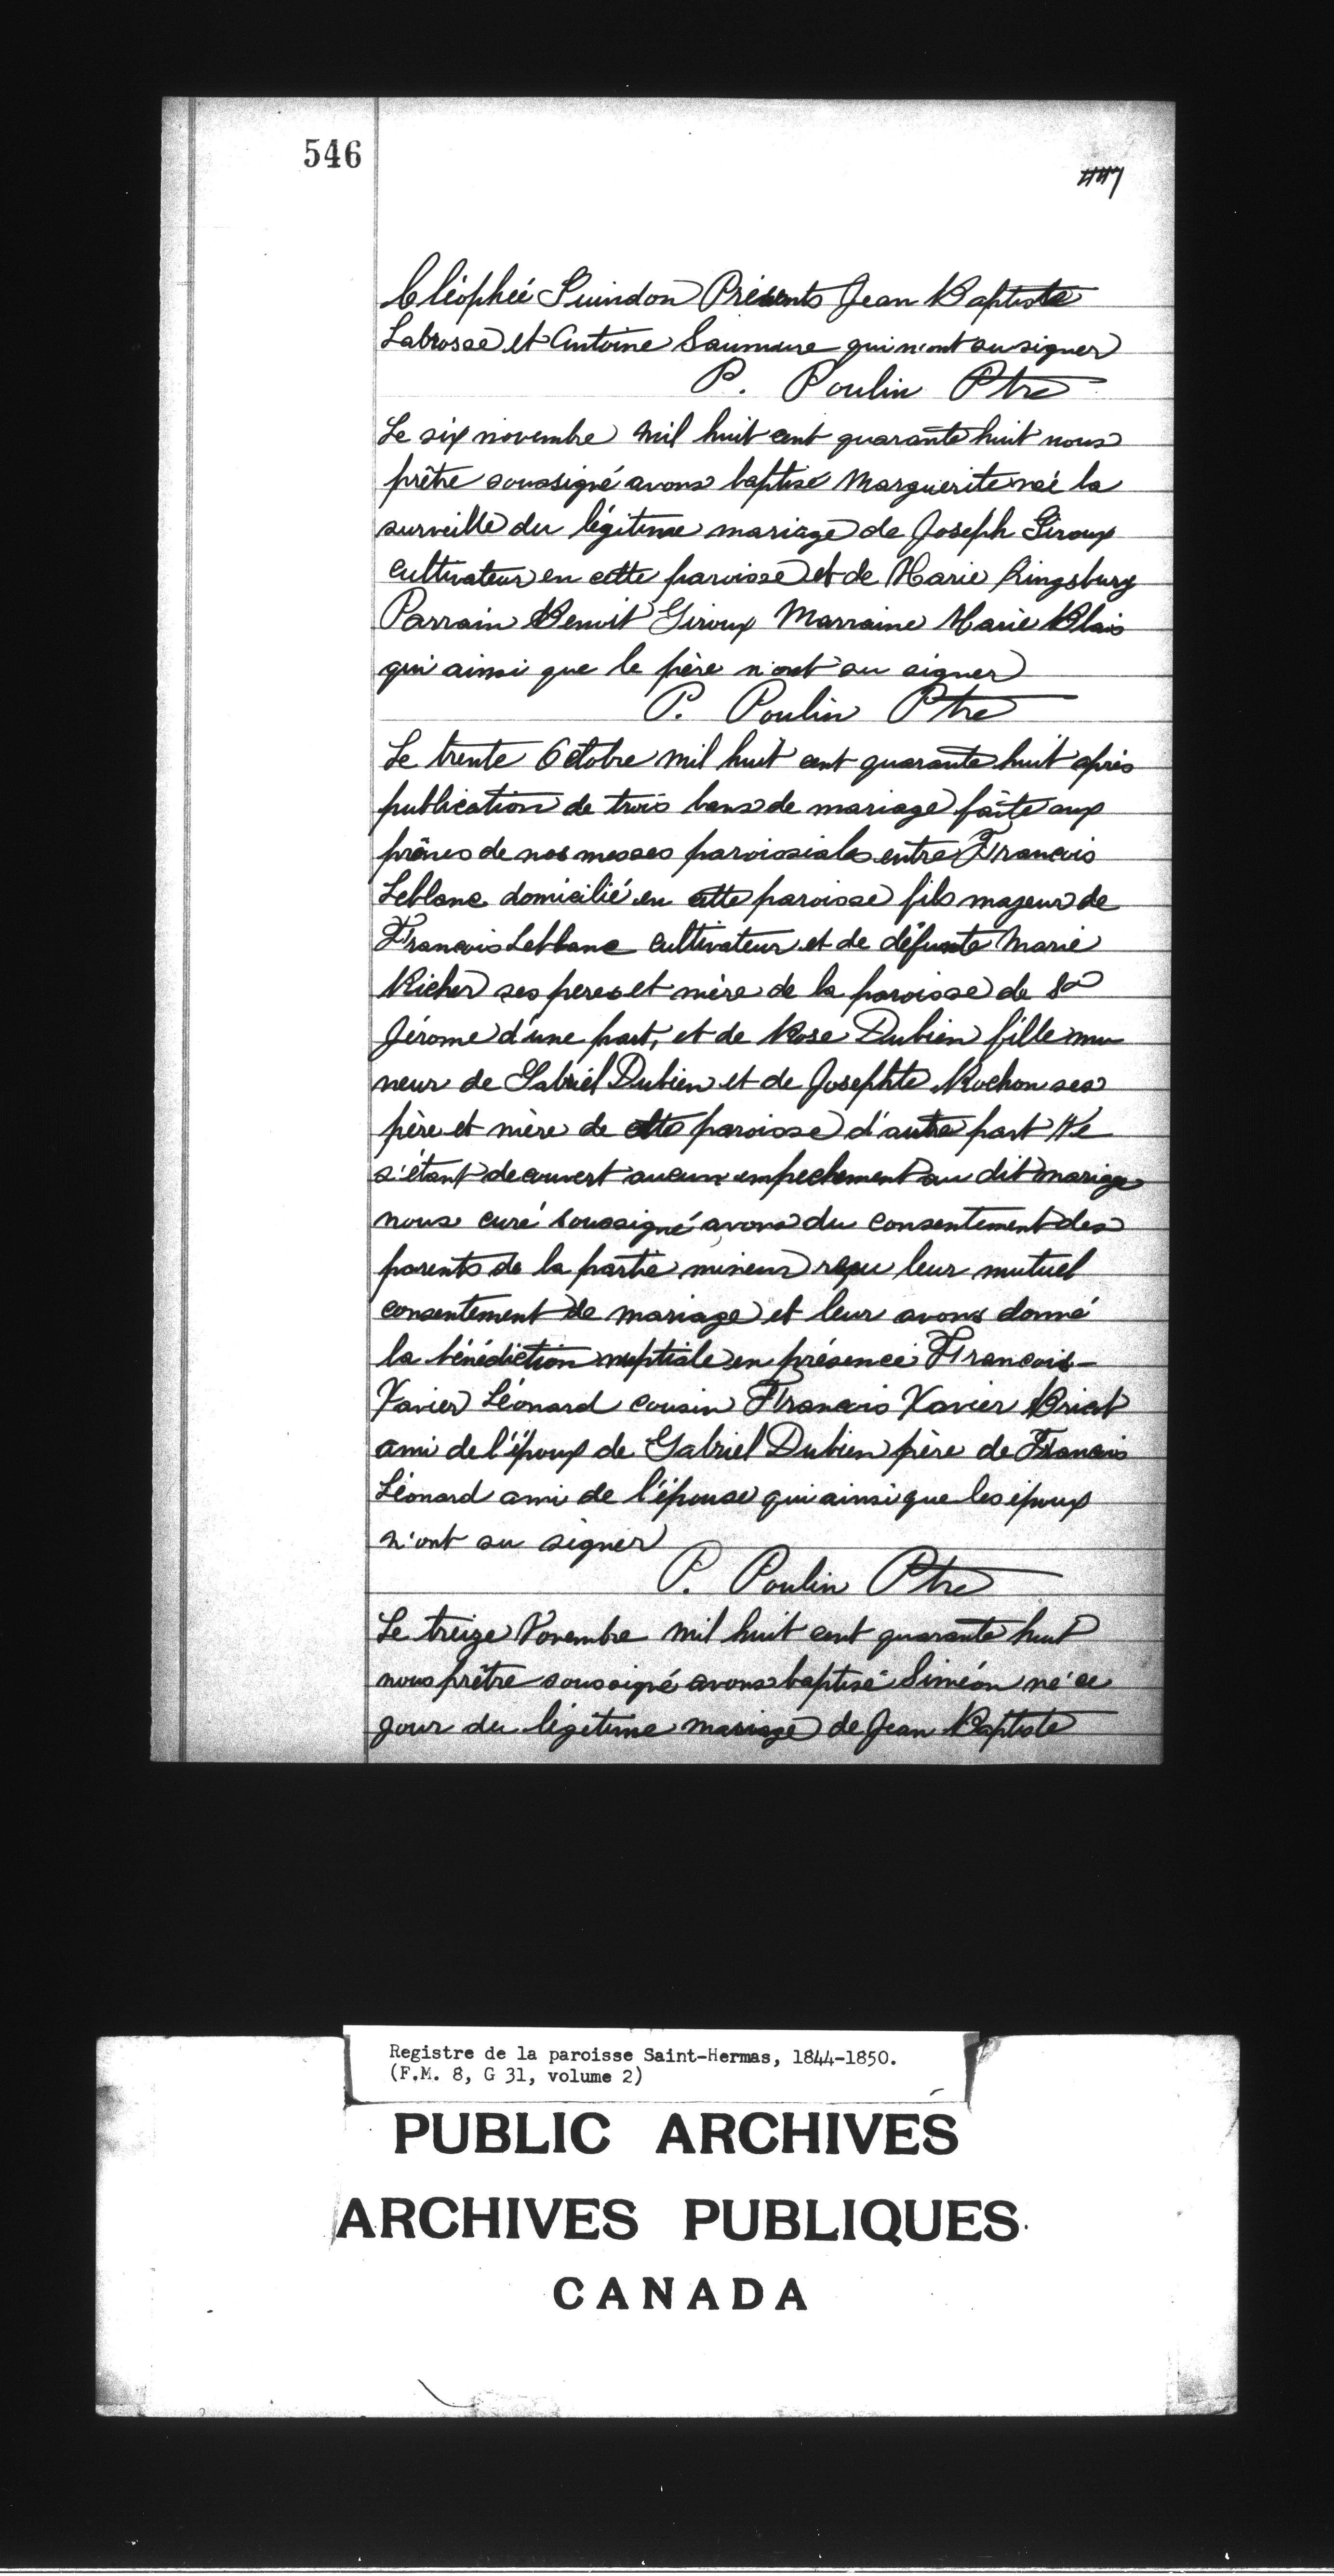 546
447
Cléophée Guindon Présents Jean Baptiste
Labrosse et Antoine Saumure qui n'ont su signer
P. Poulin Ptre
Le six novembre mil huit cent quarante huit nous
prêtre soussigné avons baptisé Marguerite née la
surveille du légitime mariage de Joseph Giroux
cultivateur en cette paroisse et de Marie Kingsbury
Parrain Benoit Giroux Marraine Marie Blais
qui ainsi que le père n'ont su signer
P. Poulin Ptre
Le trente Octobre mil huit cent quarante huit après
publication de trois bans de mariage faite aux
prônes de nos messes paroissiales entre Francois
Leblanc domicilié en cette paroisse fils majeur de
Francois Leblanc cultivateur et de défunte Marie
Richer ses peres et mère de la paroisse de St
Jérome d'une part, et de Rose Dubien fille mi
neur de Gabriel Dubien et de Josephte Rochon ses
père et mère de cette paroisse d'autre part Ne
s'étant decouvert aucun empechement au dit mariage
nous curé soussigné avons du consentement des
parents de la partie mineur reçu leur mutuel
consentement de mariage et leur avons donné
la bénédiction nuptiale en présence Francois-
Xavier Léonard cousin Francois Xavier Briat
ami de l'époux de Gabriel Dubien père de Francois
Léonard ami de l'épouse qui ainsi que les époux
n'ont su signer
P. Poulin Ptre
Le treize Novembre mil huit cent quarante huit
nous prêtre soussigné avons baptisé Siméon né ce
jour du légitime mariage de Jean Baptiste
Registre de la paroisse Saint-Hermas, 1844-1850.
(F.M. 8, G 31, volume 2)
PUBLIC ARCHIVES
ARCHIVES PUBLIQUES
CANADA